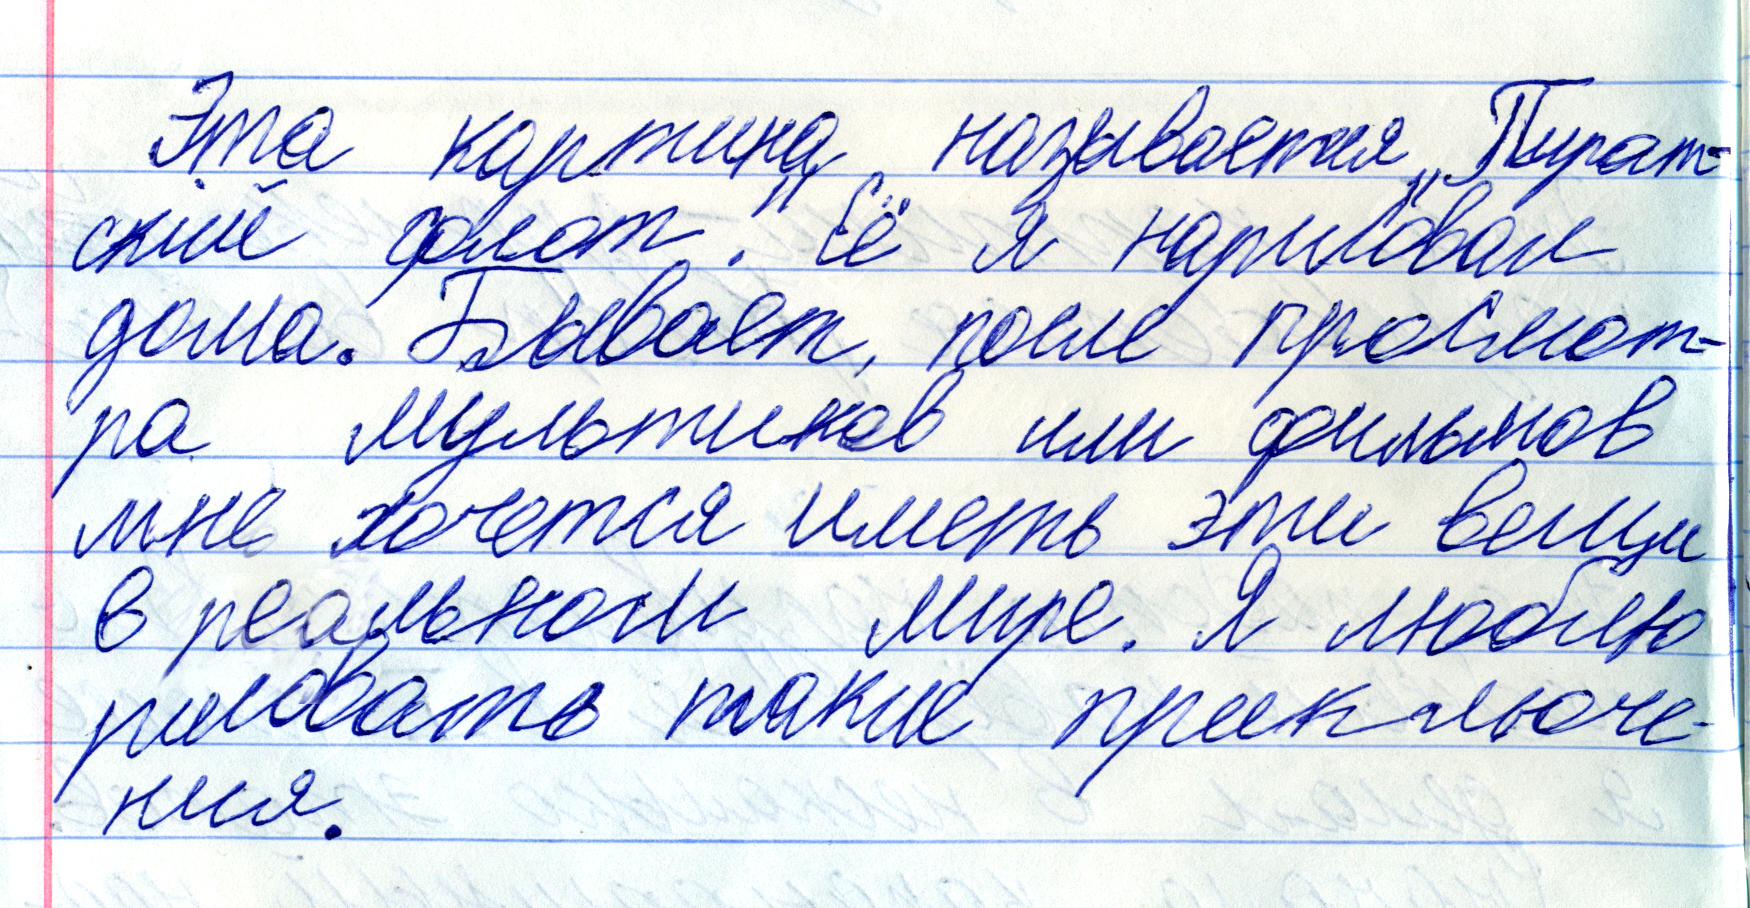 Эта картина называется „Пират-
ский флот." Её я нарисовал
дома. Бывает, после просмот-
ра мультиков или фильмов
мне хочется иметь эти вещи
в реальном мире. Я люблю
рисовать такие приключе-
ния.